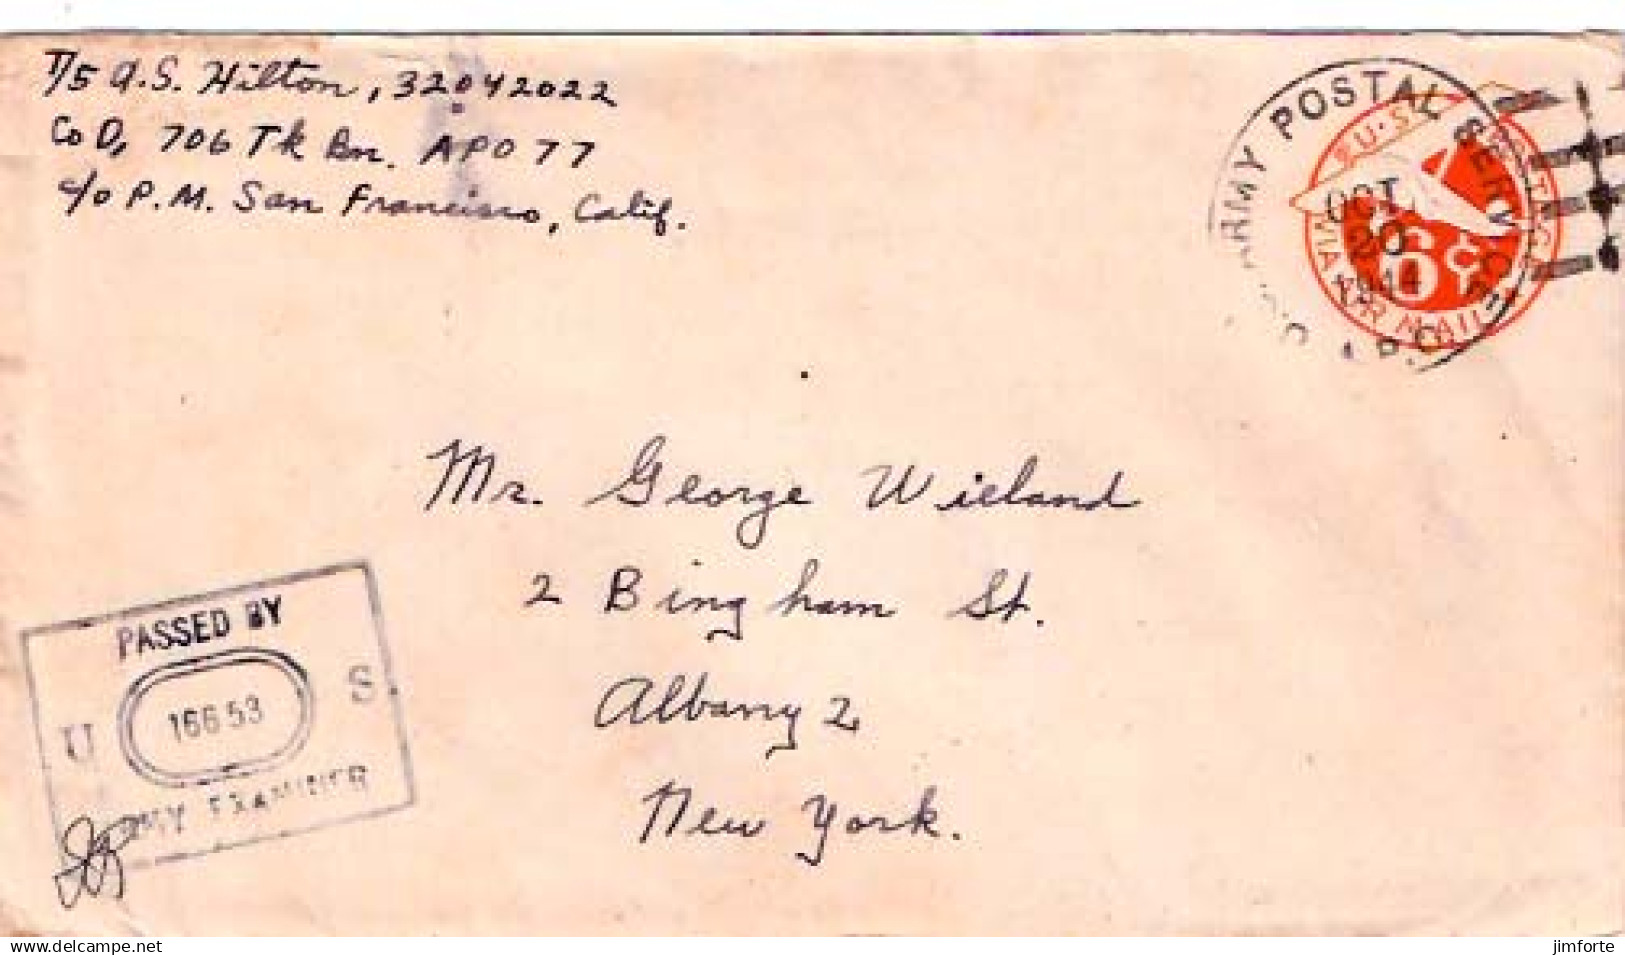 T/5 A.S. Hilton, 32042022
Co D, 706 Tk Bn. APO 77
c/o P.M. San Francisco, Calif.
ARMY POSTAL SERVICE
A.P.O.
OCT
20
1944
U.S. POSTAGE
6¢
VIA AIR MAIL
Mr. George Wieland
2 Bingham St.
Albany 2
New York.
PASSED BY
U 16653 S
ARMY EXAMINER
delcampe.net
jimforte